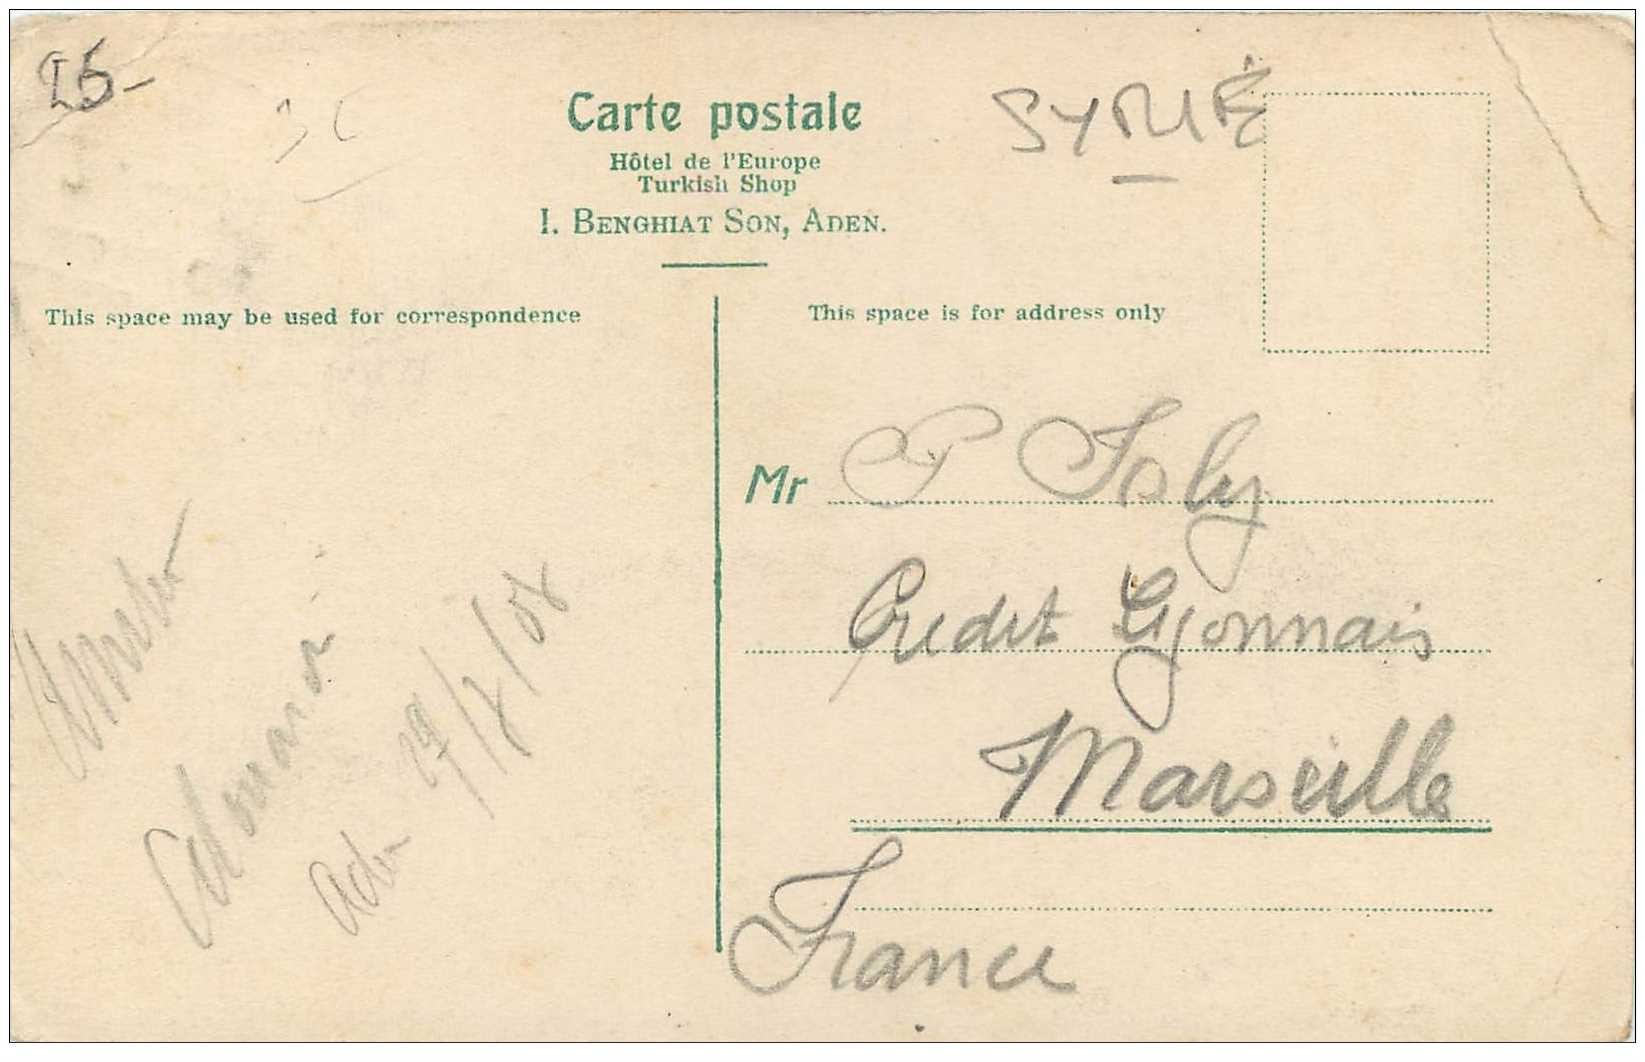 25-
3c
Carte postale
Hôtel de l'Europe
Turkish Shop
I. BENGHIAT SON, ADEN.
SYRIE
This space may be used for correspondence
This space is for address only
Mr P Joly
Credit Lyonnais
Marseille
France
Aden 29/8/08